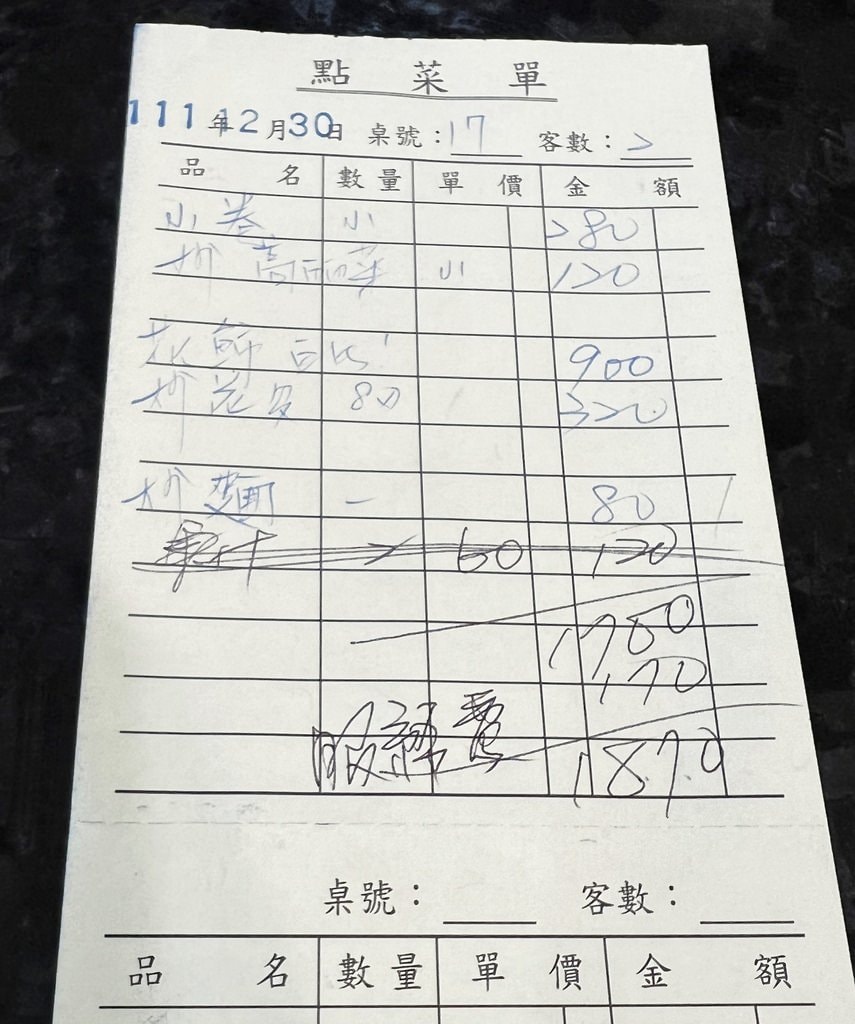 點菜單
111年12月30日 桌號：17 客數：2
品名 數量 單價 金額
小卷 小 280
炒高麗菜 小 120
900
炒 80 320
炒麵 一 80
2 60 120
1700
170
服務費 1870
桌號： 客數：
品名 數量 單價 金額